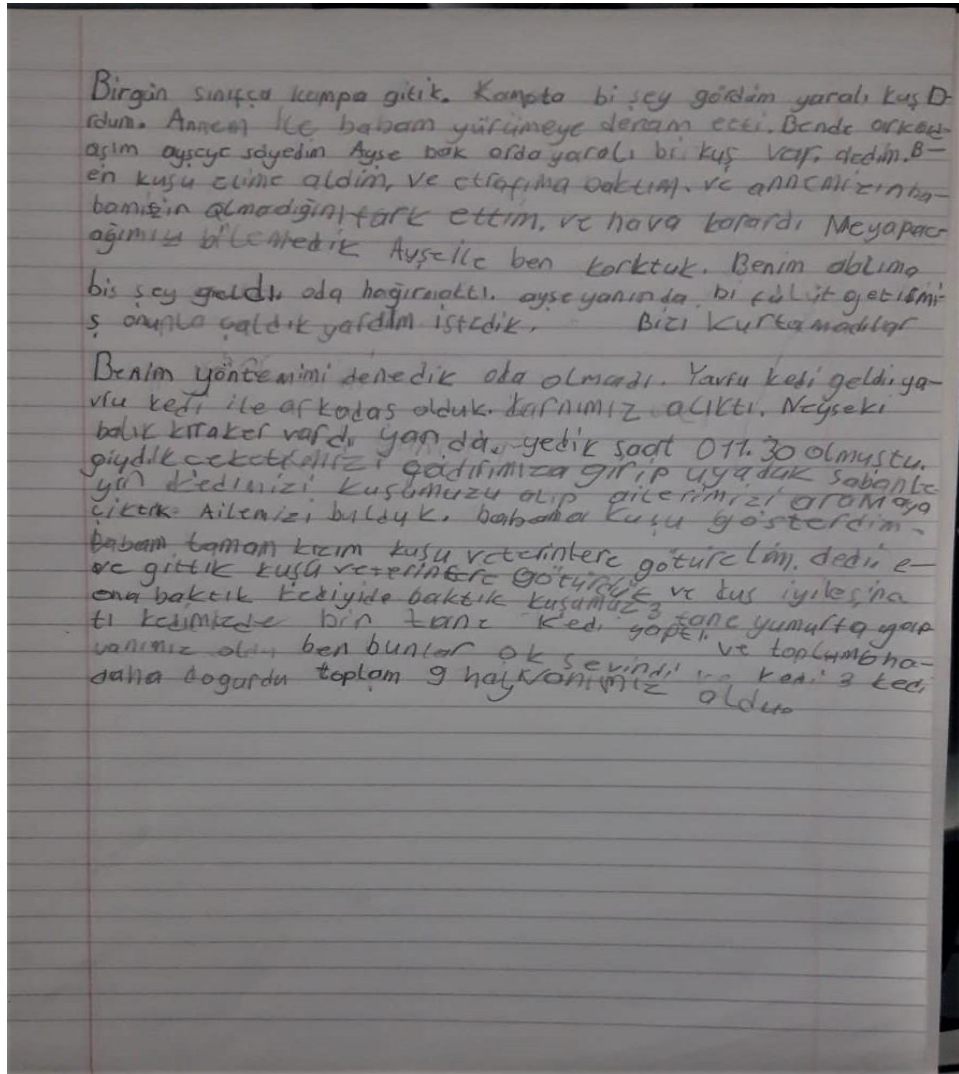 Birgün sınıfça kampa gitik. Kampta bi şey gördüm yaralı kuş D-
rdum. Annem ile babam yürümeye devam etti. Bende arkad-
aşım ayşeye söyedim Ayşe bak orda yaralı bi kuş var. dedim. B-
en kuşu elime aldım, ve etrafıma baktım. ve annemizin ba-
bamızın olmadığını fark ettim. ve hava karardı Meyapac-
ağımızı bilemedik Ayşeile ben korktuk. Benim aklıma
bis şey geldi. oda bağırmaktı. ayse yanında bi getirmi-
ş onunla çaldık yardım istedik. Bizi kurtamadılar
Benim yöntemimi denedik oda olmadı. Yavru kedi geldi ya-
vru kedi ile arkadaş olduk. karnımız acıktı. Neyseki
balık kraker vardı yanda. yedik saat 011.30 olmuştu.
giydik ceketimizi çadırımıza girip uyaduk sabahle-
yin kedimizi kuşumuzu alıp ailerimizi aramaya
çıktık. Ailemizi bulduk. babama kuşu gösterdim.
Babam tamam kızım kuşu veterintere götürelim. dedi e-
ve gittik kuşu veterintere götürdük ve kus iyileşna
ena baktık kediyide baktık kuşumuz 3 tane yumurta yap
tı kedimizde bin tane kedi yaptı. ve toplum 6 ha-
vanımız oldu ben bunlar ok sevindi ve kedi 3 kedi
daha dogurdu toplam 9 hayvanımız oldu.